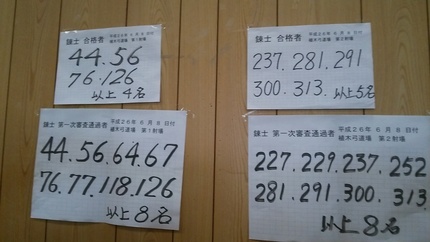 錬士 合格者 平成26年 6月 8日付
植木弓道場 第1射場
44.56
76.126
以上4名
錬士 合格者 平成26年 6月 8日付
植木弓道場 第2射場
237.281.291
300.313.以上5名
錬士 第一次審査通過者 平成26年 6月 8日付
植木弓道場 第1射場
44.56.64.67
76.77.118.126
以上8名
錬士 第一次審査通過者 平成26年 6月 8日付
植木弓道場 第2射場
227.229.237.252
281.291.300.313
以上8名